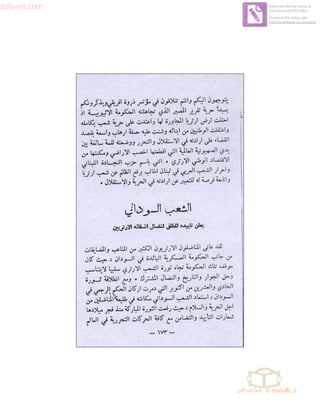 zula-eri.com
يتوجهون اليكم وانتم تتلاقون في مؤتمر ذروة افريقي ويذكرونكم
بمبدأ حرية تقرير المصير الذي تجاهلته الحكومة الاثيوبية اذ
احتلت ارض ارتريا المجاورة لها واعتدت على حرية شعب بكامله
واعتقلت الوطنيين من ابنائه وشنت عليه حملة ارهاب واسعة بقصد
القضاء على ارادته في الاستقلال والتحرر ووضعته لقمة سائغة بين
يدي الصهيونية العالمية التي اقطعتها اخصب الاراضي ومكنتها من
الاقتصاد الوطني الارتري ، انني باسم حزب النجادة اللبناني
واحرار الشعب العربي في لبنان اطالب برفع الظلم عن شعب ارتريا
واتاحة فرصة له للتعبير عن ارادته في الحرية والاستقلال .
الشعب السوداني
يعلن تاييده المطلق لنضال اشقائه الارتريين
لقد عانى المناضلون الارتريون الكثير من المتاعب والمضايقات
من جانب الحكومة العسكرية البائدة في السودان ، حيث كان
موقف تلك الحكومة تجاه ثورة الشعب الارتري سلبيا لايتناسب
وحق الجوار والتاريخ والنضال المشترك . ومع انطلاقة ثورة
الحادي والعشرين من اكتوبر التي دمرت اركان الحكم الرجعي في
السودان ، استعاد الشعب السوداني مكانته في طليعة المناضلين من
اجل الحرية والسلام ، حيث رفعت الثورة المباركة منذ فجر ميلادها
شعارات التأييد والتضامن مع كافة الحركات التحررية في العالم
— ١٧٣ —